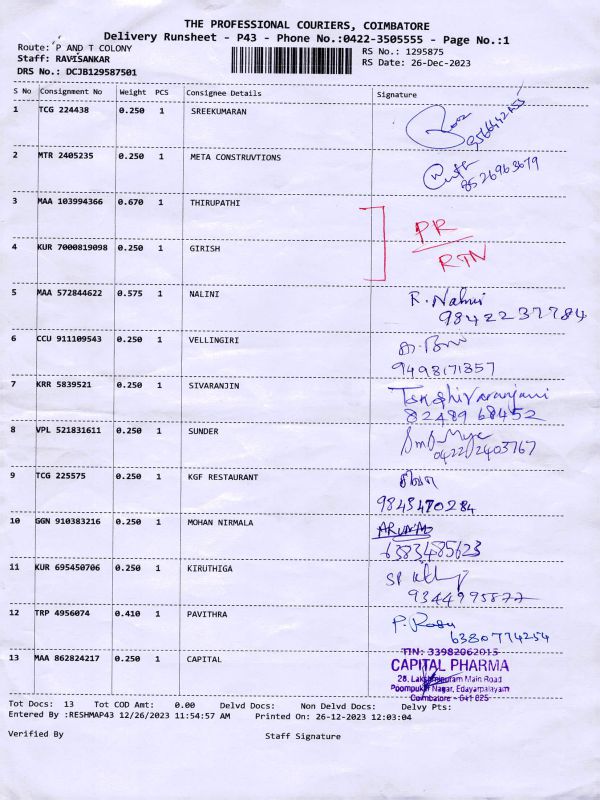 THE PROFESSIONAL COURIERS, COIMBATORE
Delivery Runsheet - P43 - Phone No.:0422-3505555 - Page No.:1
Route: P AND T COLONY
RS No.: 1295875
Staff: RAVISANKAR
RS Date: 26-Dec-2023
DRS No.: DCJB129587501
S No Consignment No Weight PCS Consignee Details Signature
1 TCG 224438 0.250 1 SREEKUMARAN
2 MTR 2405235 0.250 1 META CONSTRUVTIONS
8526963679
3 MAA 103994366 0.670 1 THIRUPATHI
PR
4 KUR 7000819098 0.250 1 GIRISH
RTN
5 MAA 572844622 0.575 1 NALINI R. Nalini
9842237784
6 CCU 911109543 0.250 1 VELLINGIRI
9498171357
7 KRR 5839521 0.250 1 SIVARANJIN
8248968452
8 VPL 521831611 0.250 1 SUNDER
0422/2403767
9 TCG 225575 0.250 1 KGF RESTAURANT
9843470284
10 GGN 910383216 0.250 1 MOHAN NIRMALA
6383485623
11 KUR 695450706 0.250 1 KIRUTHIGA
9344995877
12 TRP 4956074 0.410 1 PAVITHRA
6380774254
13 MAA 862824217 0.250 1 CAPITAL
TIN: 33982062013
CAPITAL PHARMA
28, Lakshmipuram Main Road
Poompukar Nagar, Edayarpalayam
Coimbatore - 641 025
Tot Docs: 13 Tot COD Amt: 0.00 Delvd Docs: Non Delvd Docs: Delvy Pts:
Entered By :RESHMAP43 12/26/2023 11:54:57 AM Printed On: 26-12-2023 12:03:04
Verified By Staff Signature